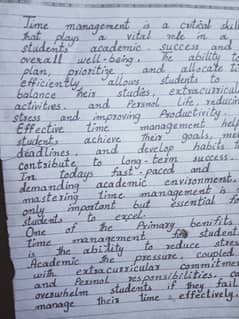 Time management is a critical skill
that plays a vital role in a
students academic success and
overall well-being. The ability to
plan, prioritize and allocate ti
efficiently allows students to
balance their studies, extracurricula
activities. and Personal life, reducin
stress and improving Productivity.
Effective time management help
student, achieve their goals, mee
deadlines. and develop habits t
contribute to long-term success.
In todays fast paced and
demanding academic environment,
mastering time management is
only important but essential fo
students to excel.
One of the Primary benifits
time management for student
is the ability to reduce stres
Academic the pressure, coupled
with extracurricular commitmen
and Personal responsibilities, ca
overwhelm students if they fail
manage their time effectively.